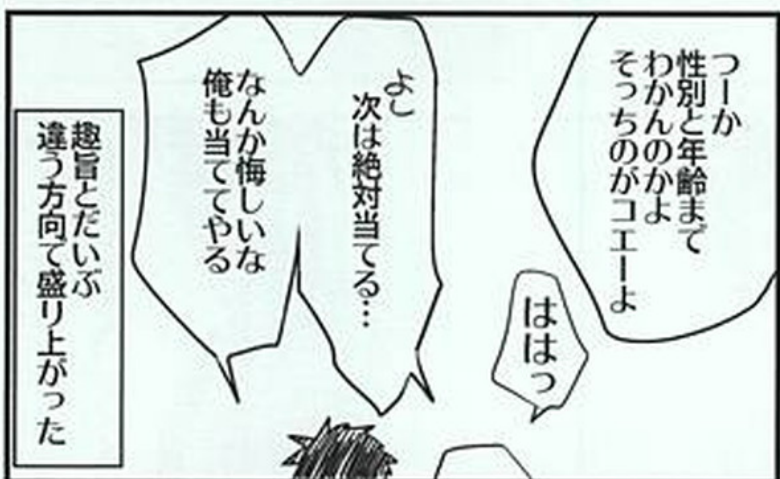 つーか
性別と年齢まで
わかんのかよ
そっちのがコエーよ
ははっ
よし
次は絶対当てる…
なんか悔しいな
俺も当ててやる
趣旨とだいぶ
違う方向で盛り上がった